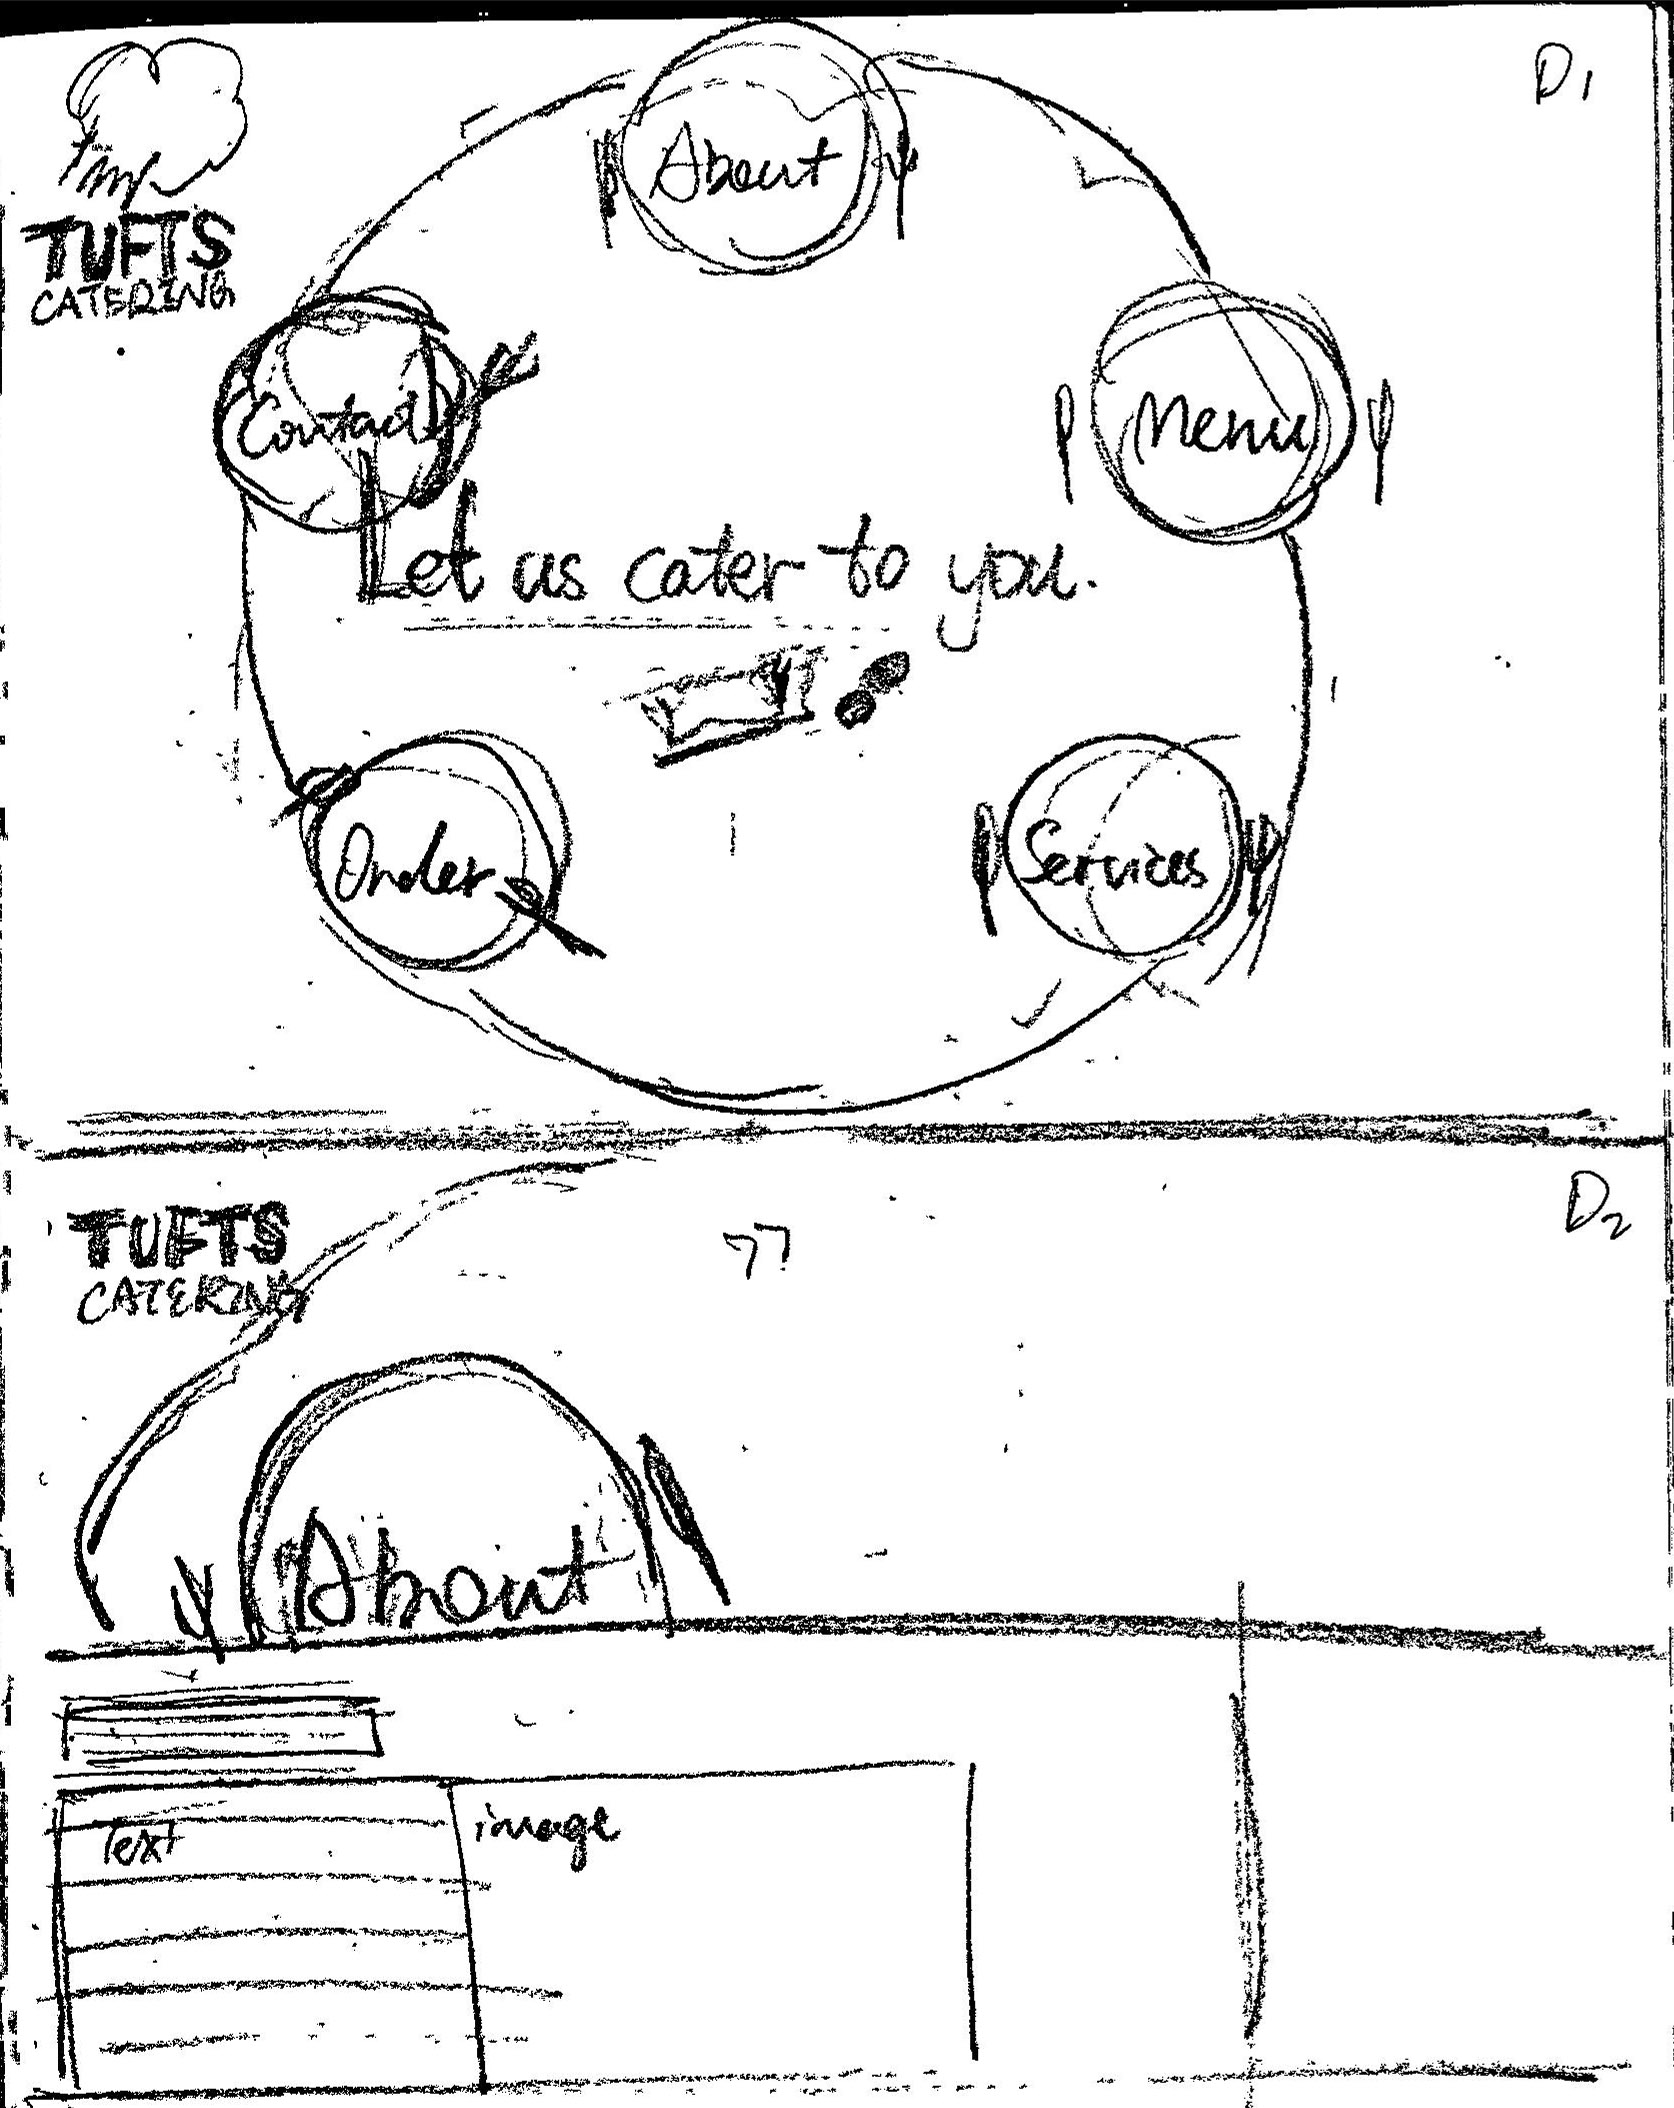 D1
TUFTS
CATERING
About
Contact
Menu
Let us cater to you.
Order
Services
D2
TUFTS
CATERING
??
About
Text
image